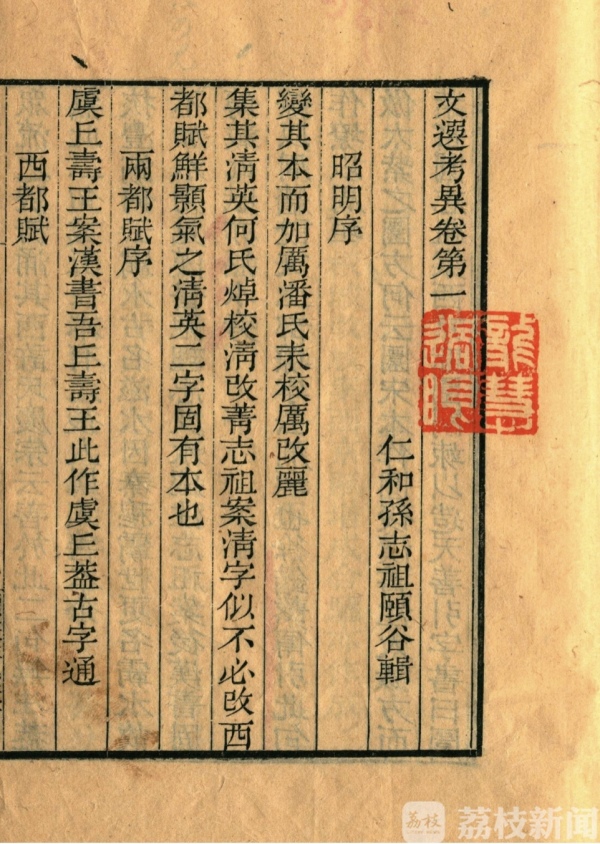 文選考異卷第一
仁和孫志祖頤谷輯
昭明序
變其本而加厲潘氏耒校厲改麗
集其清英何氏焯校清改菁志祖案清字似不必改西
都賦鮮顥氣之清英二字固有本也
兩都賦序
虞丘壽王案漢書吾丘壽王此作虞丘葢古字通
西都賦
荔枝
荔枝新闻